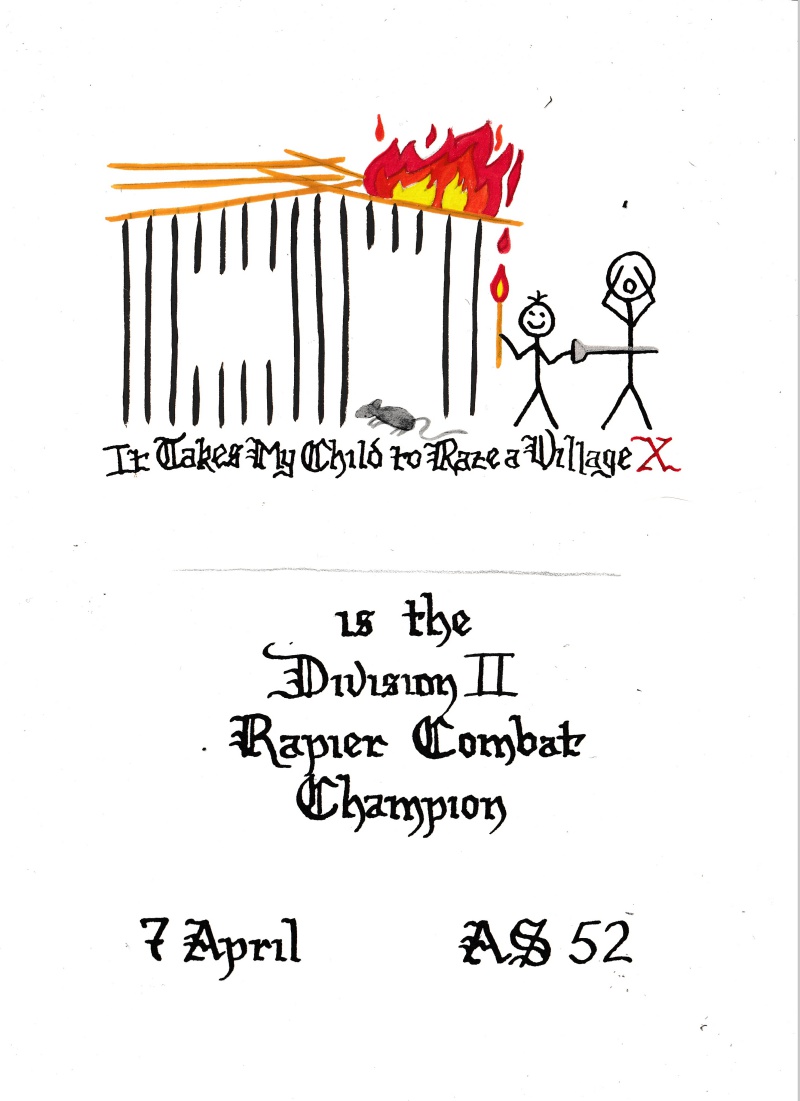 It Takes My Child to Raze a Village X
is the
Division II
Rapier Combat
Champion
7 April AS 52